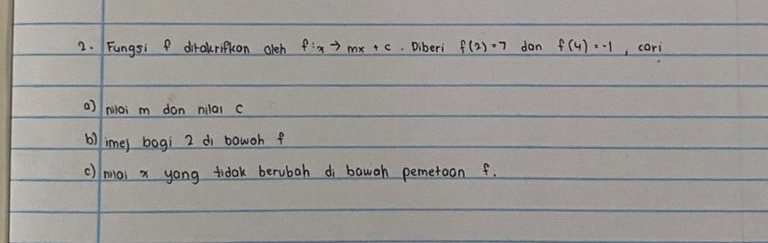 2. Fungsi f ditakrifkan oleh f:x → mx + c. Diberi f(2)=7 dan f(4)=-1, cari
a) nilai m dan nilai c
b) imej bagi 2 di bawah f
c) nilai x yang tidak berubah di bawah pemetaan f.